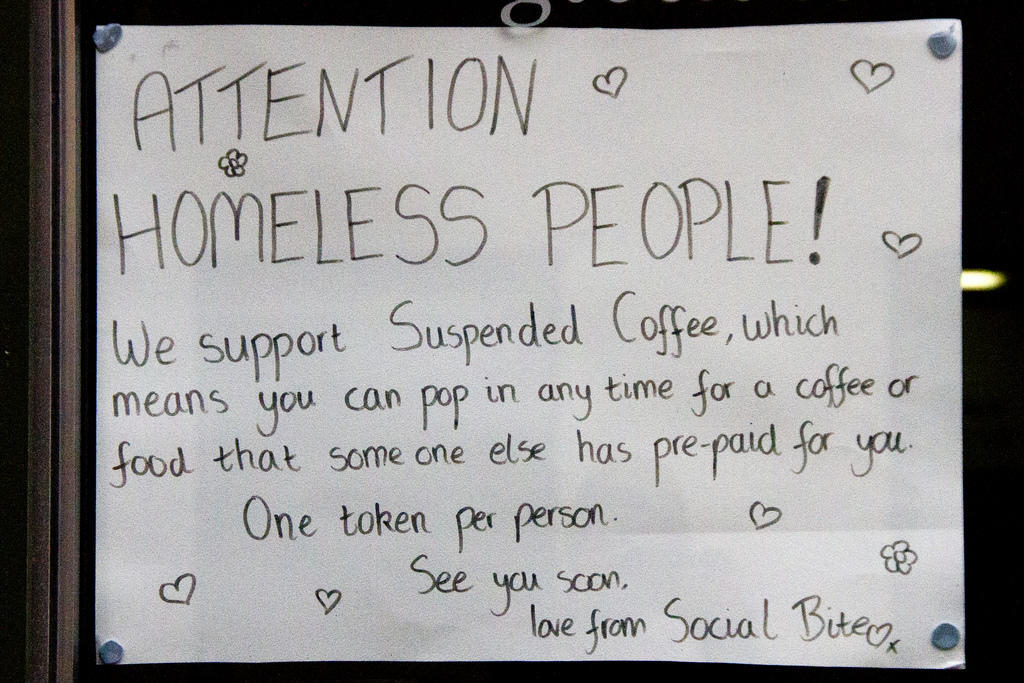 ATTENTION
HOMELESS PEOPLE!
We support Suspended Coffee, which
means you can pop in any time for a coffee or
food that someone else has pre-paid for you.
One token per person.
See you soon.
love from Social Bite x